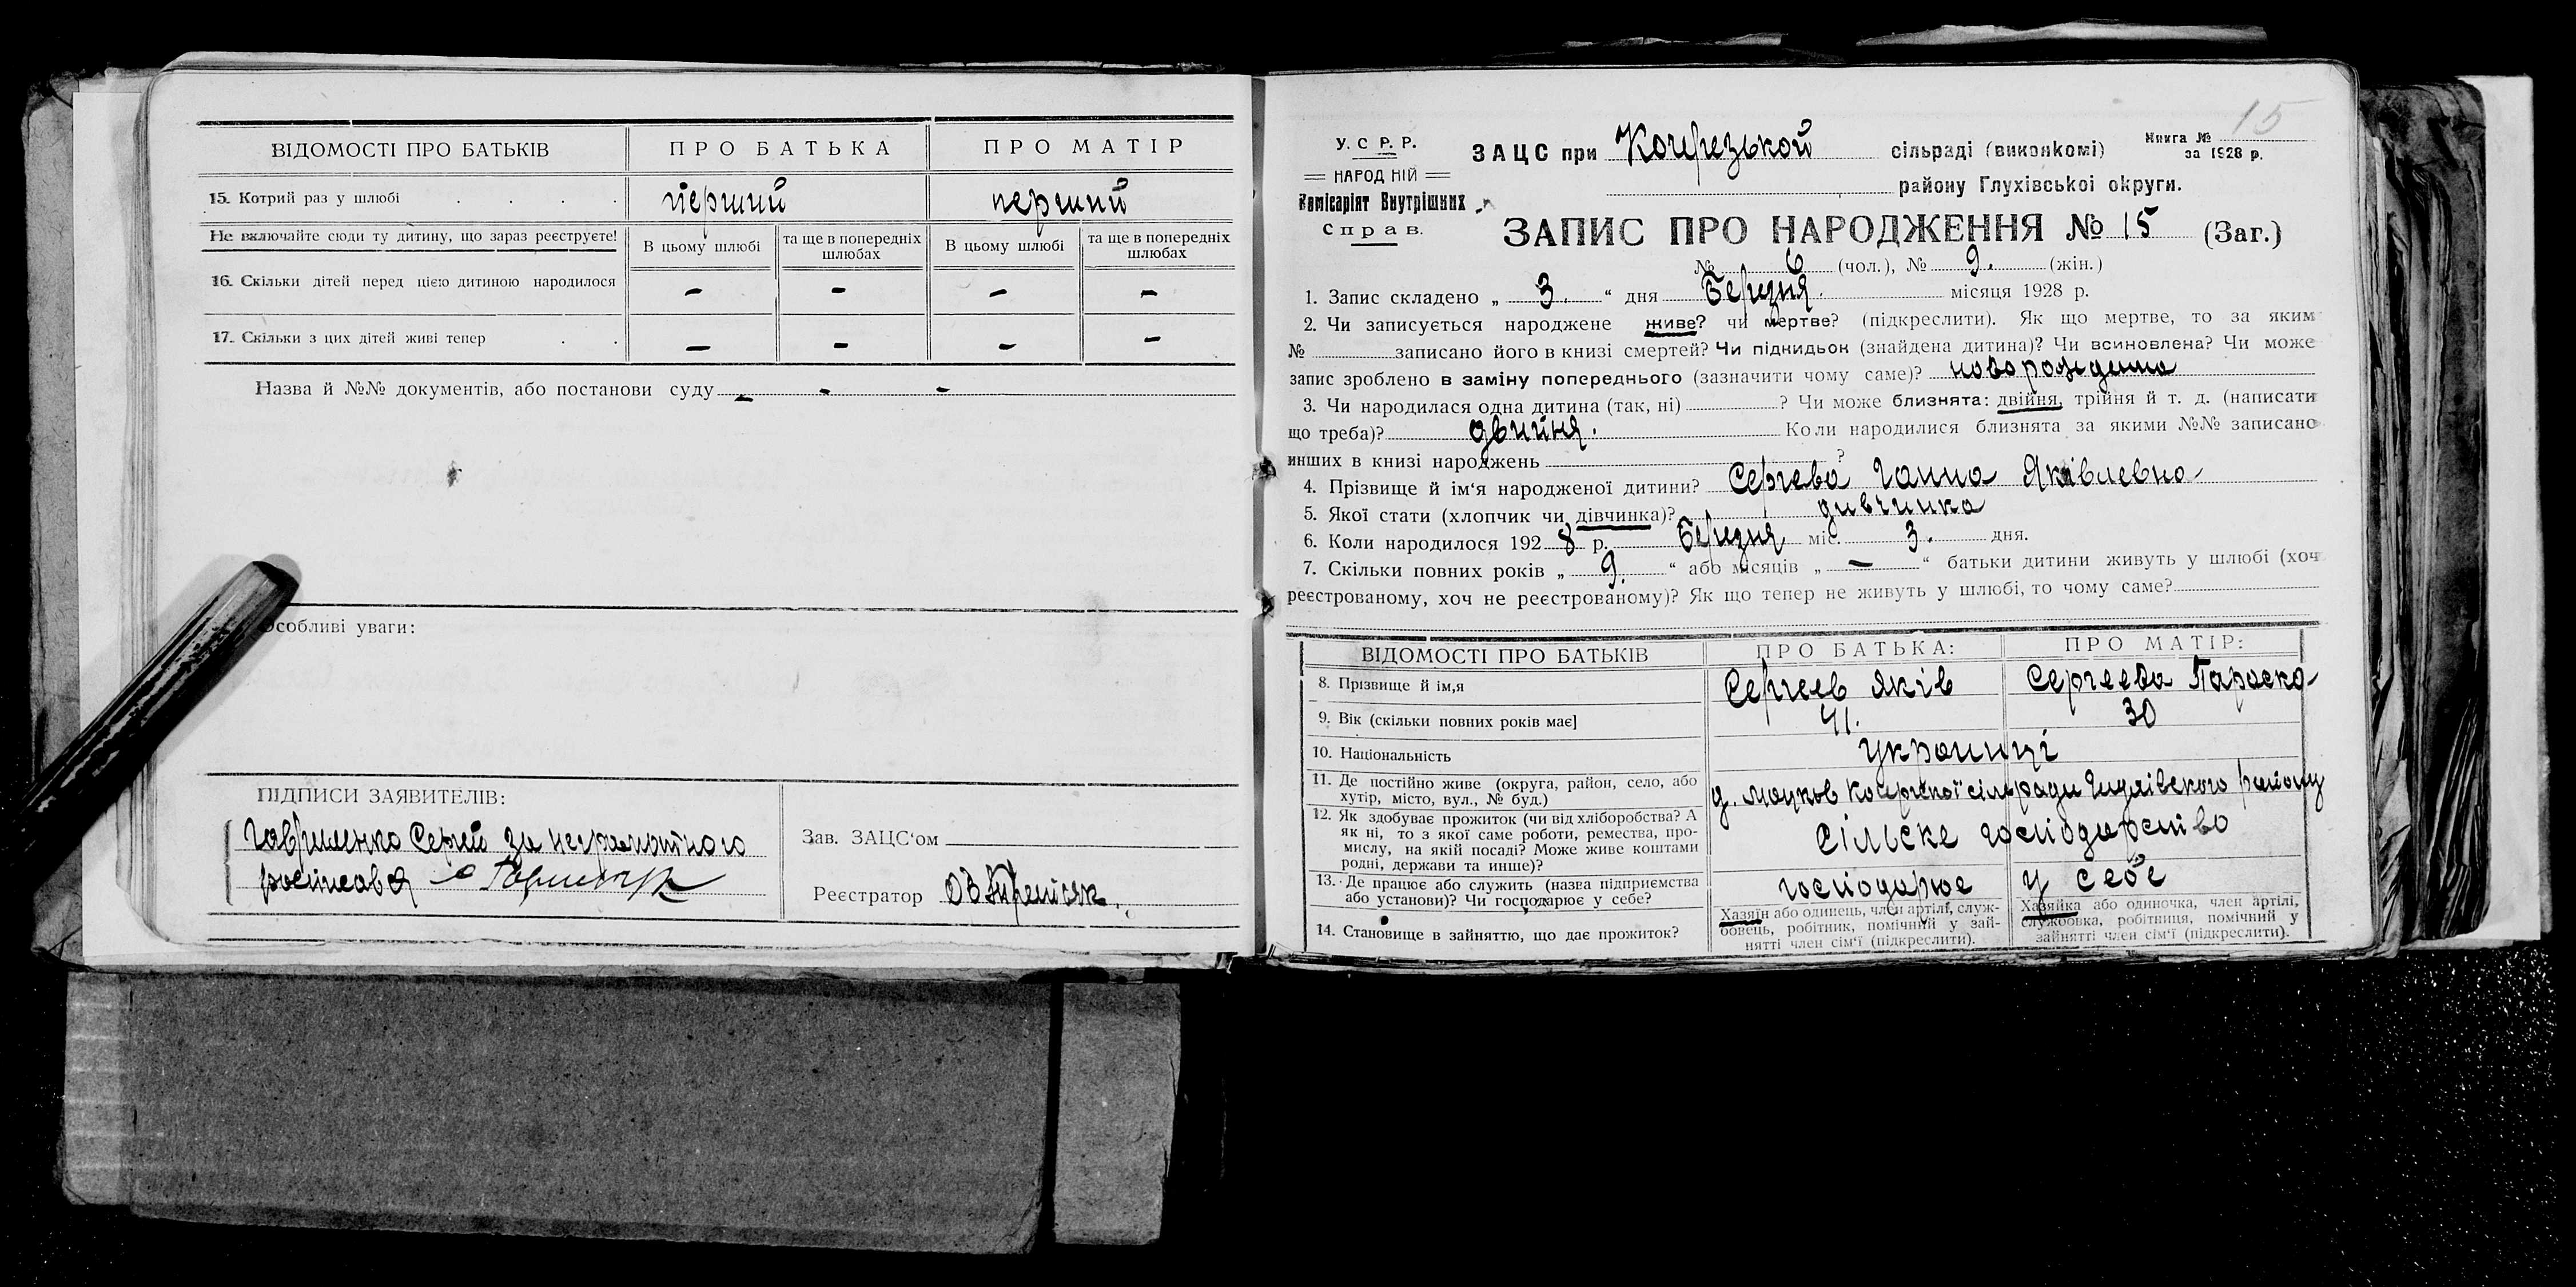 ВІДОМОСТІ ПРО БАТЬКІВ ПРО БАТЬКА ПРО МАТІР
15. Котрий раз у шлюбі . . . . перший перший
Не включайте сюди ту дитину, що зараз реєструєте! В цьому шлюбі та ще в попередніх шлюбах В цьому шлюбі та ще в попередніх шлюбах
16. Скільки дітей перед цією дитиною народилося – – – –
17. Скільки з цих дітей живі тепер . . – – – –
Назва й №№ документів, або постанови суду – – –
Особливі уваги:
ПІДПИСИ ЗАЯВИТЕЛІВ:
Гавриленко Сергій за неграмотного
росписавя
Зав. ЗАЦС'ом
Реєстратор
15
У. С Р. Р.
НАРОДНІЙ
Комісаріят Внутрішних
Справ.
ЗАЦС при Кочрезькой сільраді (виконкомі)
Книга №
за 1928 р.
району Глухівської округи.
ЗАПИС ПРО НАРОДЖЕННЯ № 15 (Заг.)
№ 6 (чол.), № 9. (жін.)
1. Запис складено „ 3. “ дня Березня. місяця 1928 р.
2. Чи записується народжене живе? чи мертве? (підкреслити). Як що мертве, то за яким
№ записано його в книзі смертей? Чи підкидьок (знайдена дитина)? Чи всиновлена? Чи може
запис зроблено в заміну попереднього (зазначити чому саме)? новорожденна
3. Чи народилася одна дитина (так, ні) ? Чи може близнята: двійня, трійня й т. д. (написати
що треба)? двийня. Коли народилися близнята за якими №№ записано
инших в книзі народжень ?
4. Прізвище й ім‘я народженої дитини? Сергева Ганна Яківлевна
5. Якої стати (хлопчик чи дівчинка)? дивчинка
6. Коли народилося 192 8 р. Березня міс. 3. дня.
7. Скільки повних років „ 9. “ або місяців „ – “ батьки дитини живуть у шлюбі (хоч
реєстрованому, хоч не реєстрованому)? Як що тепер не живуть у шлюбі, то чому саме?
ВІДОМОСТІ ПРО БАТЬКІВ ПРО БАТЬКА: ПРО МАТІР:
8. Прізвище й ім,я Сергеев Яків Сергеева Параска
9. Вік (скільки повних років має] 41. 30
10. Національність украинці
11. Де постійно живе (округа, район, село, або
хутір, місто, вул., № буд.) сільради району
12. Як здобуває прожиток (чи від хліборобства? А
як ні, то з якої саме роботи, ремества, про-
мислу, на якій посаді? Може живе коштами
родні, держави та инше)? сільске господарство
13. Де працює або служить (назва підприємства
або установи)? Чи господарює у себе? господарює у себе
14. Становище в зайняттю, що дає прожиток?
Хазяїн або одинець, член артілі, служ-
бовець, робітник, помічний у зай-
нятті член сім‘ї (підкреслити).
Хазяйка або одиночка, член артілі,
службовка, робітниця, помічний у
зайнятті член сім‘ї (підкреслити).